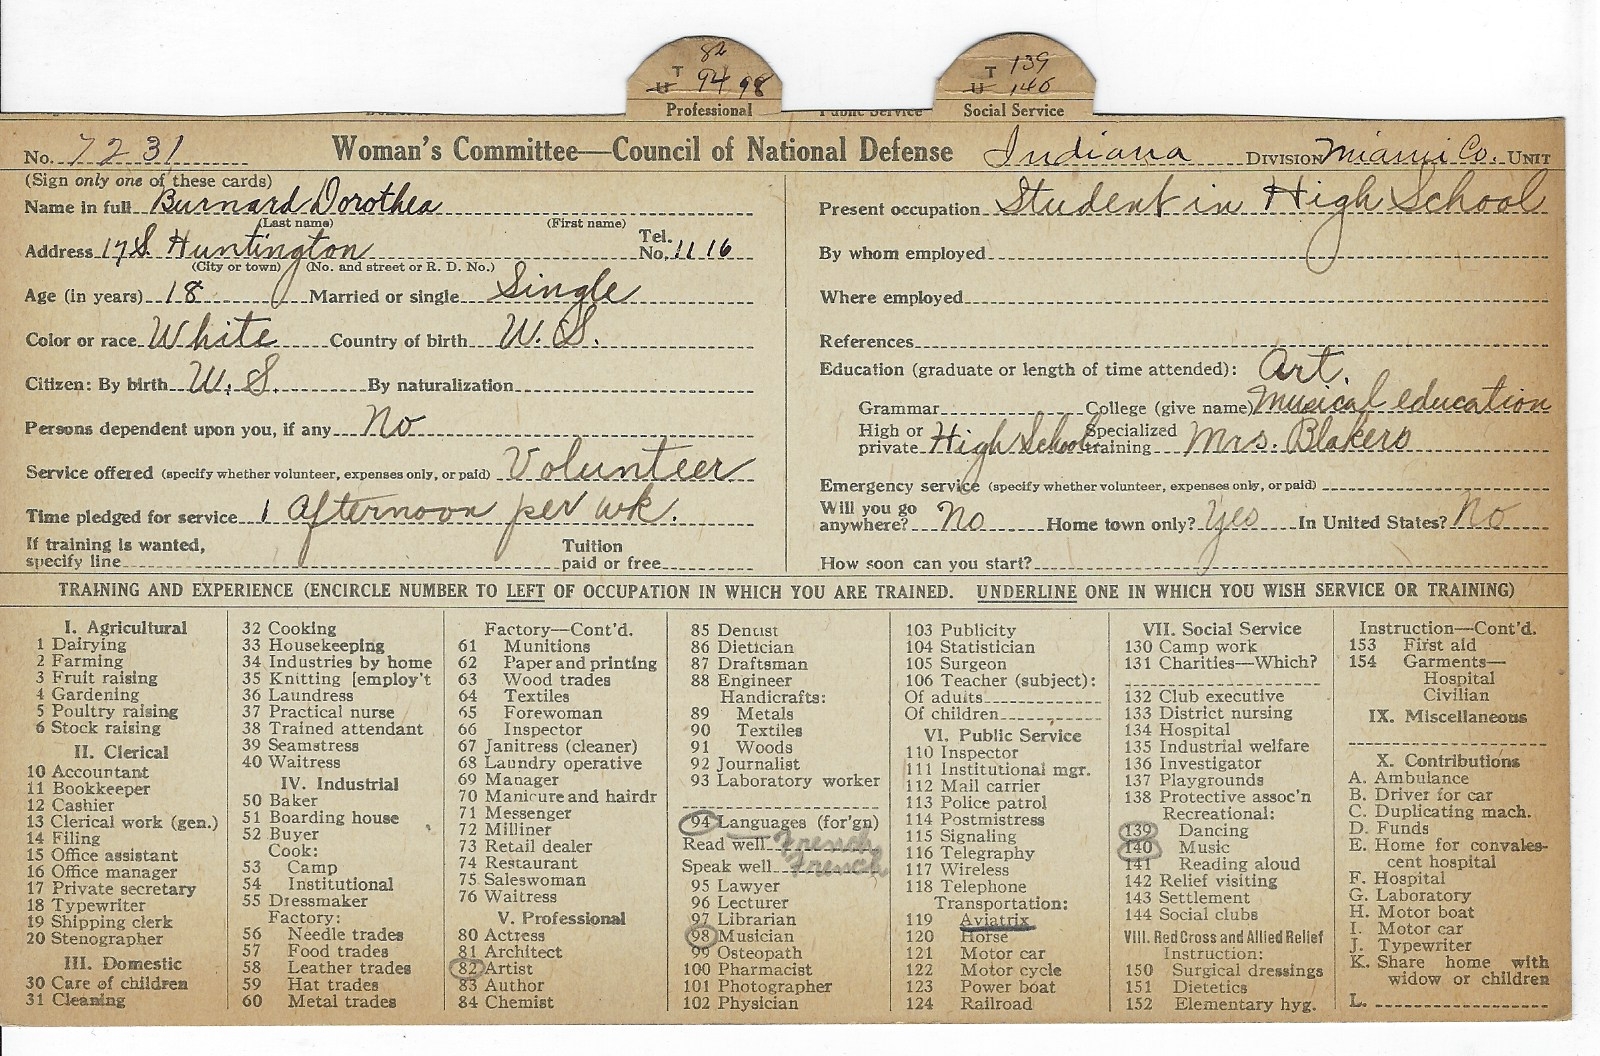 82
T 94 98
U
Professional
Public Service
T 139
U 140
Social Service
No. 7231 Woman's Committee—Council of National Defense Indiana DIVISION Miami Co. UNIT
(Sign only one of these cards)
Name in full Burnard Dorothea
(Last name) (First name)
Address 17 S. Huntington Tel. No. 1116
(City or town) (No. and street or R. D. No.)
Age (in years) 18 Married or single Single
Color or race White Country of birth U. S.
Citizen: By birth U. S. By naturalization
Persons dependent upon you, if any No
Service offered (specify whether volunteer, expenses only, or paid) Volunteer
Time pledged for service 1 afternoon per wk.
If training is wanted, specify line Tuition paid or free
Present occupation Student in High School
By whom employed
Where employed
References
Education (graduate or length of time attended): Art.
Grammar College (give name) Musical education
High or private High School Specialized training Mrs. Blakers
Emergency service (specify whether volunteer, expenses only, or paid)
Will you go anywhere? No Home town only? Yes In United States? No
How soon can you start?
TRAINING AND EXPERIENCE (ENCIRCLE NUMBER TO LEFT OF OCCUPATION IN WHICH YOU ARE TRAINED. UNDERLINE ONE IN WHICH YOU WISH SERVICE OR TRAINING)
I. Agricultural
1 Dairying
2 Farming
3 Fruit raising
4 Gardening
5 Poultry raising
6 Stock raising
II. Clerical
10 Accountant
11 Bookkeeper
12 Cashier
13 Clerical work (gen.)
14 Filing
15 Office assistant
16 Office manager
17 Private secretary
18 Typewriter
19 Shipping clerk
20 Stenographer
III. Domestic
30 Care of children
31 Cleaning
32 Cooking
33 Housekeeping
34 Industries by home
35 Knitting [employ't
36 Laundress
37 Practical nurse
38 Trained attendant
39 Seamstress
40 Waitress
IV. Industrial
50 Baker
51 Boarding house
52 Buyer
Cook:
53 Camp
54 Institutional
55 Dressmaker
Factory:
56 Needle trades
57 Food trades
58 Leather trades
59 Hat trades
60 Metal trades
Factory—Cont'd.
61 Munitions
62 Paper and printing
63 Wood trades
64 Textiles
65 Forewoman
66 Inspector
67 Janitress (cleaner)
68 Laundry operative
69 Manager
70 Manicure and hairdr
71 Messenger
72 Milliner
73 Retail dealer
74 Restaurant
75 Saleswoman
76 Waitress
V. Professional
80 Actress
81 Architect
82 Artist
83 Author
84 Chemist
85 Dentist
86 Dietician
87 Draftsman
88 Engineer
Handicrafts:
89 Metals
90 Textiles
91 Woods
92 Journalist
93 Laboratory worker
94 Languages (for'gn)
Read well French
Speak well French
95 Lawyer
96 Lecturer
97 Librarian
98 Musician
99 Osteopath
100 Pharmacist
101 Photographer
102 Physician
103 Publicity
104 Statistician
105 Surgeon
106 Teacher (subject):
Of adults
Of children
VI. Public Service
110 Inspector
111 Institutional mgr.
112 Mail carrier
113 Police patrol
114 Postmistress
115 Signaling
116 Telegraphy
117 Wireless
118 Telephone
Transportation:
119 Aviatrix
120 Horse
121 Motor car
122 Motor cycle
123 Power boat
124 Railroad
VII. Social Service
130 Camp work
131 Charities—Which?
132 Club executive
133 District nursing
134 Hospital
135 Industrial welfare
136 Investigator
137 Playgrounds
138 Protective assoc'n
Recreational:
139 Dancing
140 Music
141 Reading aloud
142 Relief visiting
143 Settlement
144 Social clubs
VIII. Red Cross and Allied Relief
Instruction:
150 Surgical dressings
151 Dietetics
152 Elementary hyg.
Instruction—Cont'd.
153 First aid
154 Garments—
Hospital
Civilian
IX. Miscellaneous
X. Contributions
A. Ambulance
B. Driver for car
C. Duplicating mach.
D. Funds
E. Home for convales-
cent hospital
F. Hospital
G. Laboratory
H. Motor boat
I. Motor car
J. Typewriter
K. Share home with
widow or children
L.